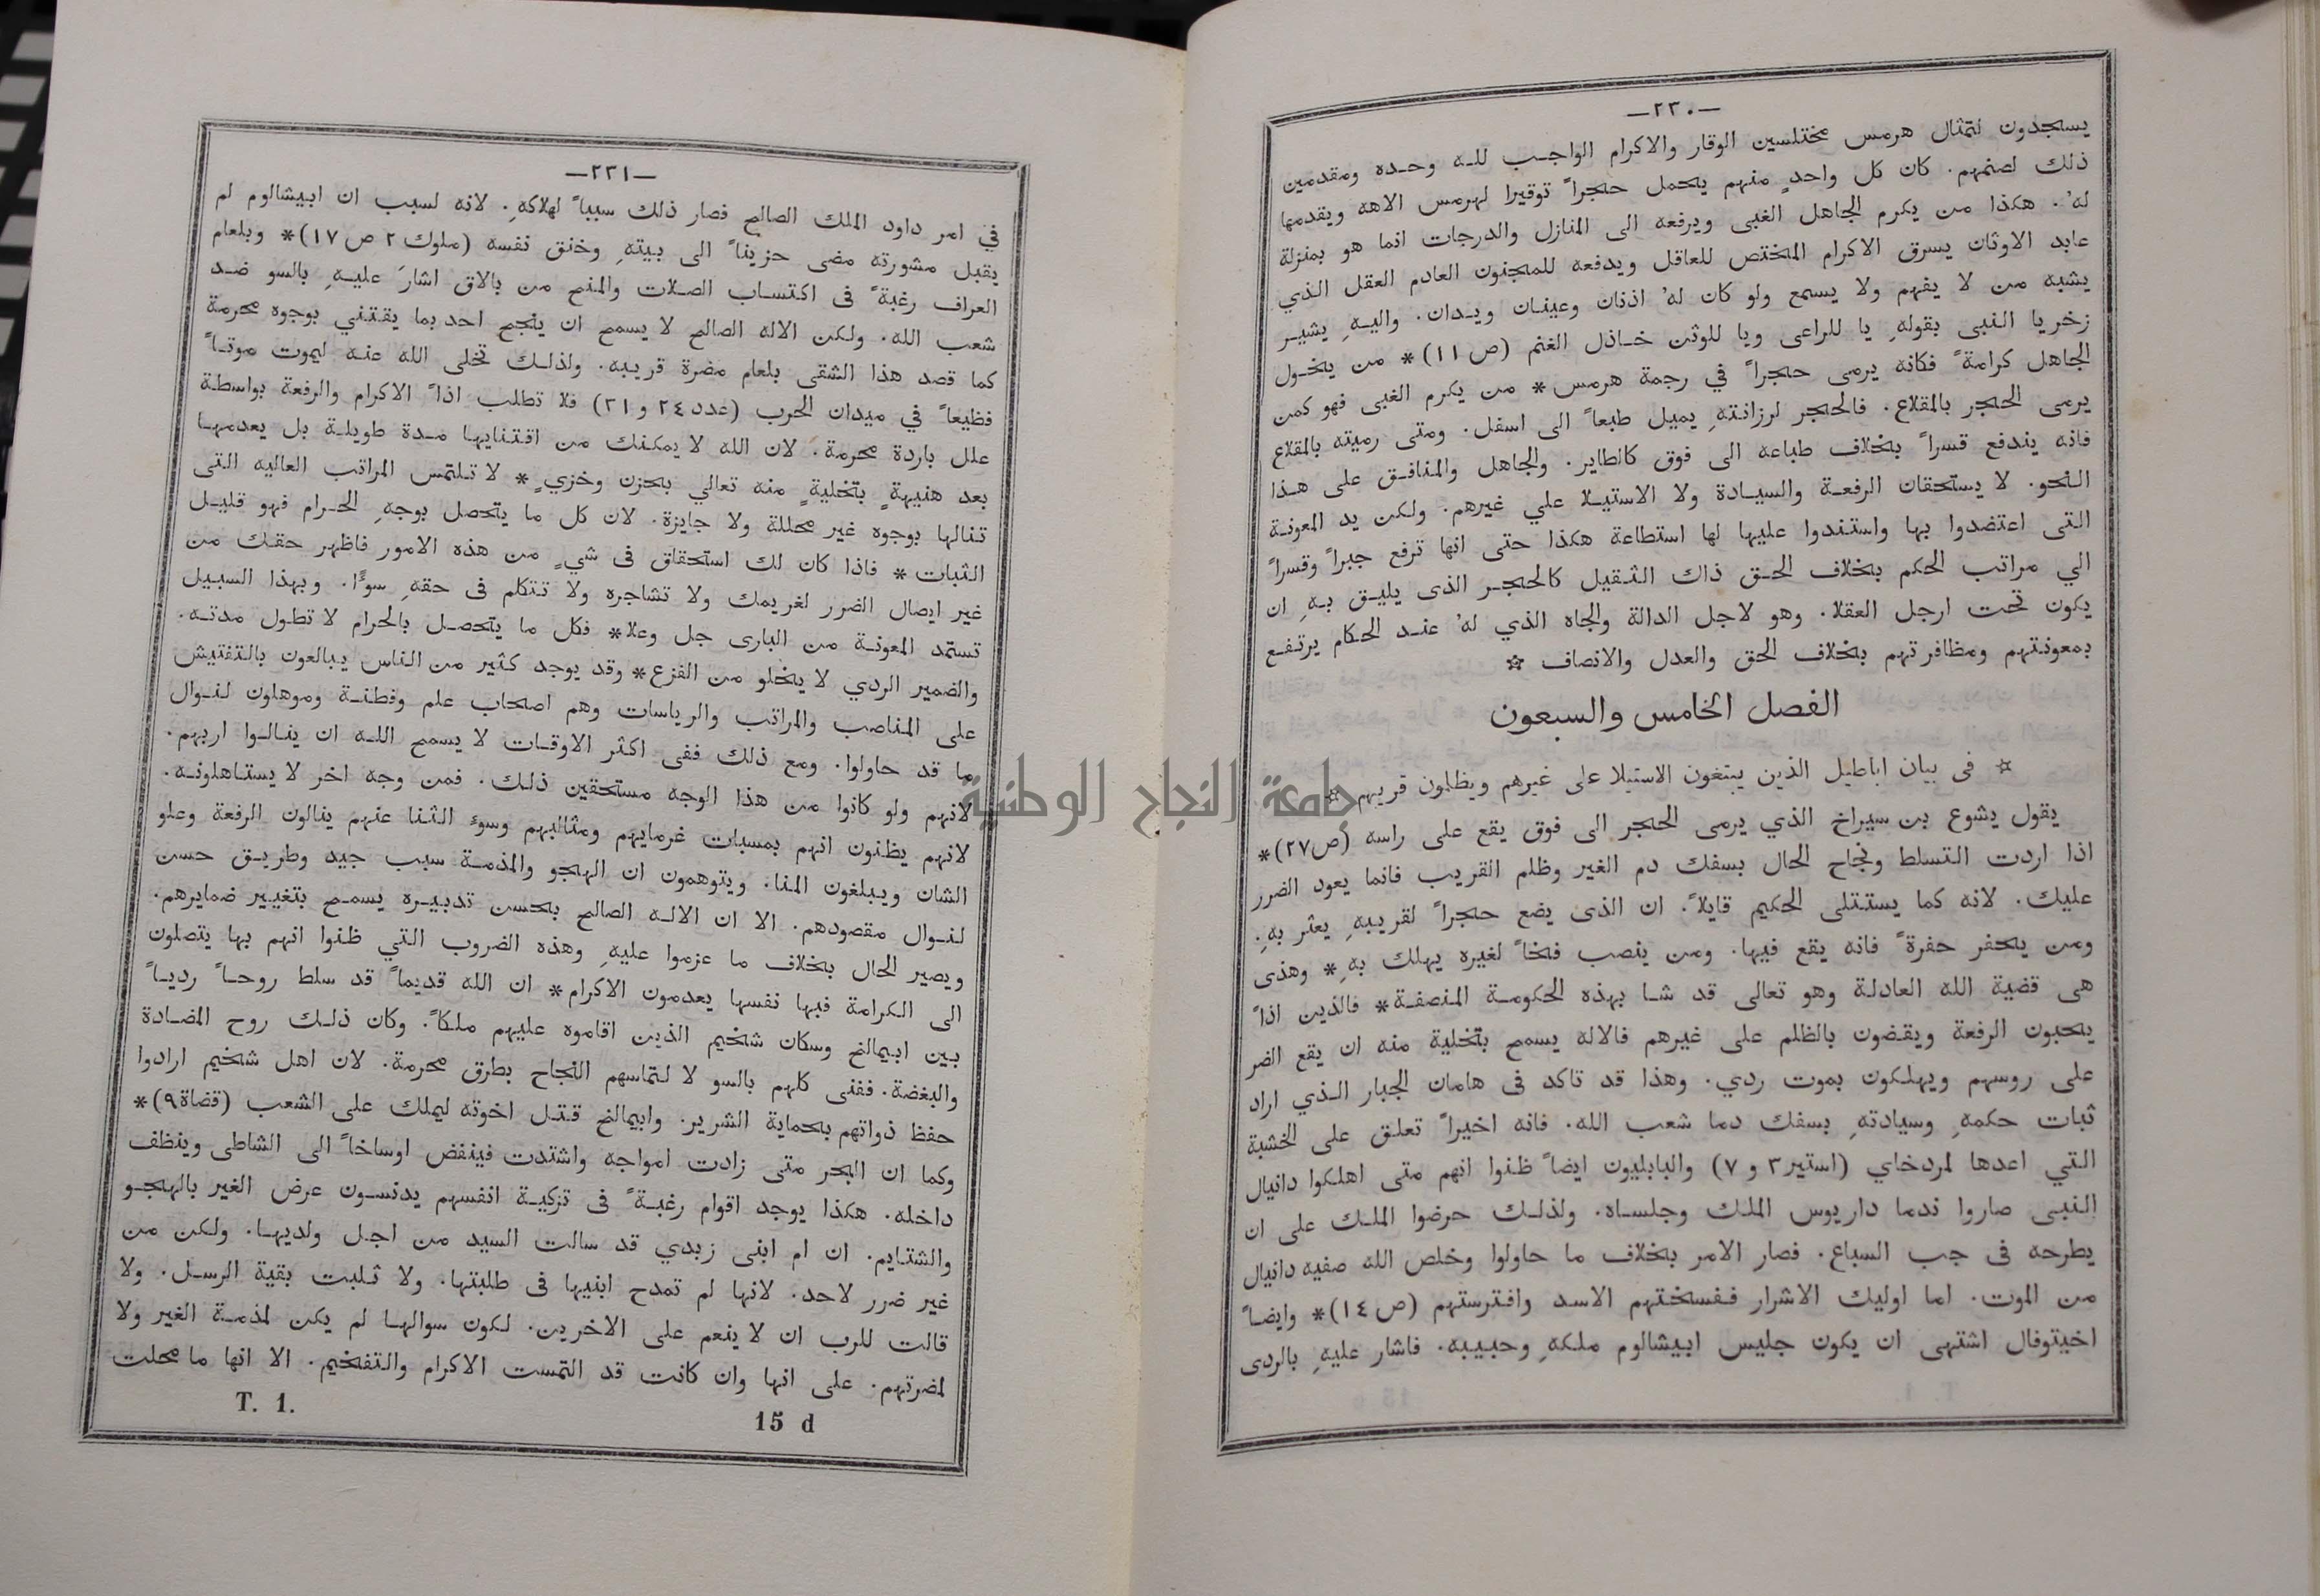 —٢٣٠—
يسجدون لتمثال هرمس مختلسين الوقار والاكرام الواجب للـه وحـده ومقدمين
ذلك لصنمهم. كان كل واحدٍ منهم يحمل حجراً توقيرا لهرمس الاهه ويقدمها
له'. هكذا من يكرم الجاهل الغبى ويرفعه الى المنازل والدرجات انما هو بمنزلة
عابد الاوثان يسرق الاكرام المختص للعاقل ويدفعه للمجنون العادم العقل الذي
يشبه من لا يفهم ولا يسمع ولو كان له' اذنان وعينـان ويـدان. واليـهِ يشيـر
زخريا النبى بقولهِ يا للراعى ويا للوثن خـاذل الغنم (ص ١١)* من يخـول
الجاهل كرامةً فكانه يرمى حجراً في رجمة هرمس* من يكرم الغبى فهو كمن
يرمى الحجر بالمقلاع. فالحجر لرزانتهِ يميل طبعاً الى اسفل. ومتى رميته بالمقلاع
فانه يندفع قسراً بخلاف طباعه الى فوق كالطاير. والجاهل والمنافـق على هـذا
النحو. لا يستحقان الرفعـة والسيـادة ولا الاستيـلا علي غيرهم. ولكن يد المعونـة
التى اعتضدوا بها واستندوا عليها لها استطاعة هكذا حتى انها ترفع جبراً وقسراً
الي مراتب الحكم بخلاف الحـق ذاك الثـقيل كالحجـر الذى يليـق بـهِ ان
يكون تحت ارجل العقلا. وهو لاجل الدالة والجاه الذي له' عنـد الحكام يرتفـع
بمعونتهم ومظافرتهم بخلاف الحق والعدل والانصاف ☆
الفصل الخامس والسبعون
☆ فى بيان اباطيل الذين يبتغون الاستيلا على غيرهم ويظلمون قريبهم ☆
يقول يشوع بن سيراخ الذي يرمى الحجر الى فوق يقع على راسه (ص٢٧)*
اذا اردت التسلط ونجاح الحال بسفك دم الغير وظلم القريب فانما يعود الضرر
عليك. لانه كما يستتلى الحكيم قايلاً. ان الذى يضع حجراً لقريبهِ يعثر بهِ.
ومن يحفر حفرةً فانه يقع فيها. ومن ينصب فخاً لغيره يهلك بهِ* وهذى
هى قضية الله العادلة وهو تعالى قد شـا بهذه الحكومـة المنصفـة* فالذين اذاً
يحبون الرفعة ويقضون بالظلم على غيرهم فالاله يسمح بتخلية منه ان يقع الضر
على روسهم ويهلكون بموت ردي. وهذا قد تاكد فى هامان الجبار الـذي اراد
ثبات حكمهِ وسيادتهِ بسفك دما شعب الله. فانه اخيراً تعلـق على الخشبة
التي اعدها لمردخاي (استير٣ و ٧) والبابليون ايضاً ظنوا انهم متى اهلكوا دانيال
النبـى صاروا ندما داريوس الملـك وجلسـاه. ولذلـك حرضوا الملـك على ان
يطرحه فى جب السباع. فصار الامر بخلاف ما حاولوا وخلص الله صفيه دانيال
من الموت. اما اوليك الاشرار ففسختهم الاسد وافترستهم (ص ١٤)* وايضـاً
اخيتوفال اشتهى ان يكون جليس ابيشالوم ملكهِ وحبيبه. فاشار عليهِ بالردى
—٢٣١—
في امر داود الملك الصالح فصار ذلك سبباً لهلاكهِ. لانه لسبب ان ابيشالوم لم
يقبل مشورته مضى حزيناً الى بيتهِ وخنق نفسه (ملوك ٢ ص ١٧)* وبلعام
العراف رغبةً فى اكتسـاب الصـلات والمنح من بالاق اشارَ عليـهِ بالسو ضـد
شعب الله. ولكن الاله الصالح لا يسمح ان ينجح احد بما يقتني بوجوه محرمة
كما قصد هذا الشقى بلعام مضرة قريبه. ولذلـك تخلى الله عنـه ليموت موتـاً
فظيعاً في ميدان الحرب (عدد ٢٤ و ٣١) فلا تطلب اذاً الاكرام والرفعة بواسطة
علل باردة محرمة. لان الله لا يمكنك من اقتنايها مـدة طويلـة بل يعدمهـا
بعد هنيهةٍ بتخليةٍ منه تعالي بحزن وخزيٍ* لا تـلتمس المراتب العاليه التى
تنالها بوجوه غير محللة ولا جايزة. لان كل ما يتحصل بوجهِ الحـرام فهو قليـل
الثبات* فاذا كان لك استحقاق فى شيٍ من هذه الامور فاظهر حقك من
غير ايصال الضرر لغريمك ولا تشاجره ولا تتكلم فى حقهِ سوءًا. وبهذا السبيل
تستمد المعونـة من البارى جل وعلا* فكل ما يتحصـل بالحرام لا تطول مدتـه.
والضمير الردي لا يخلو من الفزع* وقد يوجد كثير من الناس يبالغون بالتفتيش
على المناصب والمراتب والرياسات وهم اصحاب علم وفطنـة وموهلون لنـوال
ما قد حاولوا. ومع ذلك ففى اكثر الاوقـات لا يسمح اللـه ان ينـالـوا اربهم.
لانهم ولو كانوا من هذا الوجه مستحقين ذلـك. فمن وجه اخر لا يستـاهلونـه.
لانهم يظنون انهم بمسبات غرمايهم ومثالبهم وسوء الثنا عنهم ينالون الرفعة وعلو
الشان ويبلغون المنا. ويتوهمون ان الهجو والمذمـة سبب جيد وطريـق حسن
لنـوال مقصودهم. الا ان الالـه الصالح بحسن تدبيـره يسمـح بتغيير ضمايرهم.
ويصير الحال بخلاف ما عزموا عليهِ وهذه الضروب التي ظنوا انهم بها يتصلون
الى الكرامة فبها نفسها يعدمون الاكرام* ان الله قديماً قد سلط روحـاً رديـاً
بين ابيمالخ وسكان شخيم الذين اقاموه عليهم ملكاً. وكان ذلـك روح المضـادة
والبغضة. ففنى كلهم بالسو لا لتماسهم النجاح بطرق محرمة. لان اهل شخيم ارادوا
حفظ ذواتهم بحماية الشرير. وابيمالخ قتـل اخوته ليملك على الشعب (قضاة٩)*
وكما ان البحر متى زادت امواجه واشتدت فينفض اوساخاً الى الشاطى وينظف
داخله. هكذا يوجد اقوام رغبـةً فى تزكيـة انفسهم يدنسـون عرض الغير بالهجـو
والشتايم. ان ام ابنى زبدي قد سالت السيد من اجـل ولديهـا. ولكن من
غير ضرر لاحد. لانها لم تمدح ابنيها فى طلبتها. ولا ثـلبت بقية الرسـل. ولا
قالت للرب ان لا ينعم على الاخرين. لكون سوالهـا لم يكن لمذمـة الغير ولا
لمضرتهم. على انها وان كانت قد التمست الاكرام والتفخيم. الا انها ما محلت
T. 1.
15 d
جامعة النجاح الوطنية